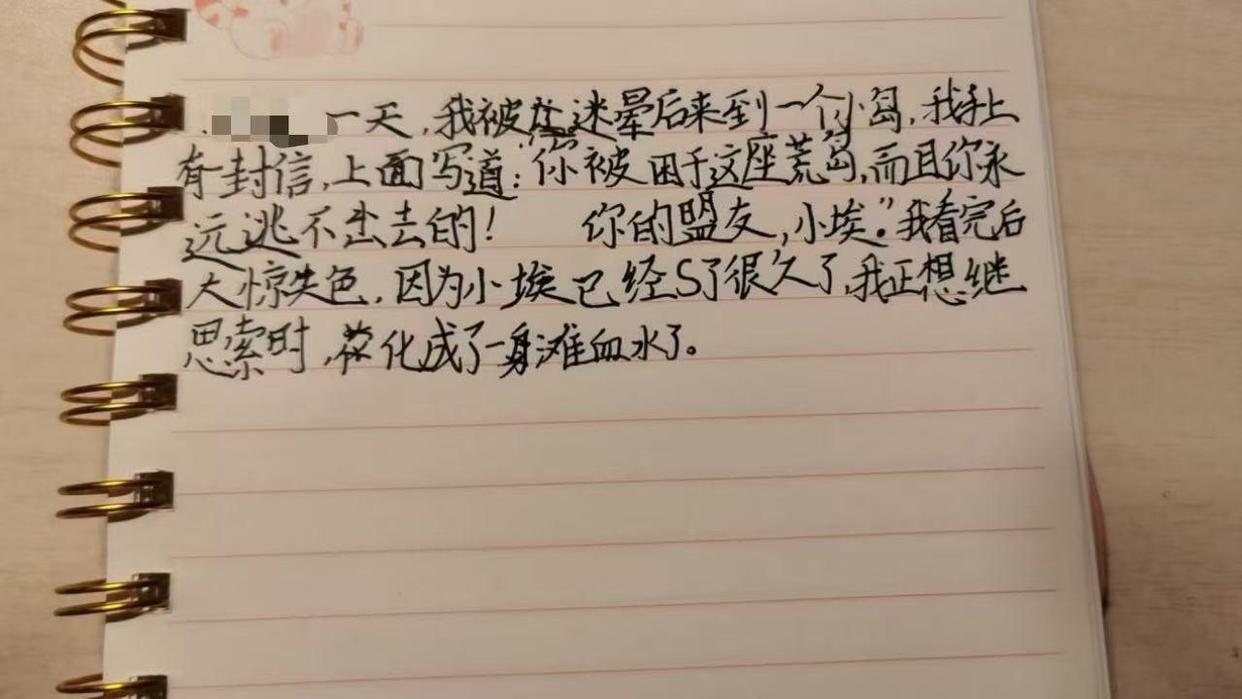 一天,我被迷晕后来到一个小岛,我手上
有封信,上面写道:“你被困于这座荒岛,而且你永
远逃不出去的! 你的盟友,小埃”。我看完后
大惊失色,因为小埃已经S了很久了,我正想继
思索时,化成了一身滩血水了。